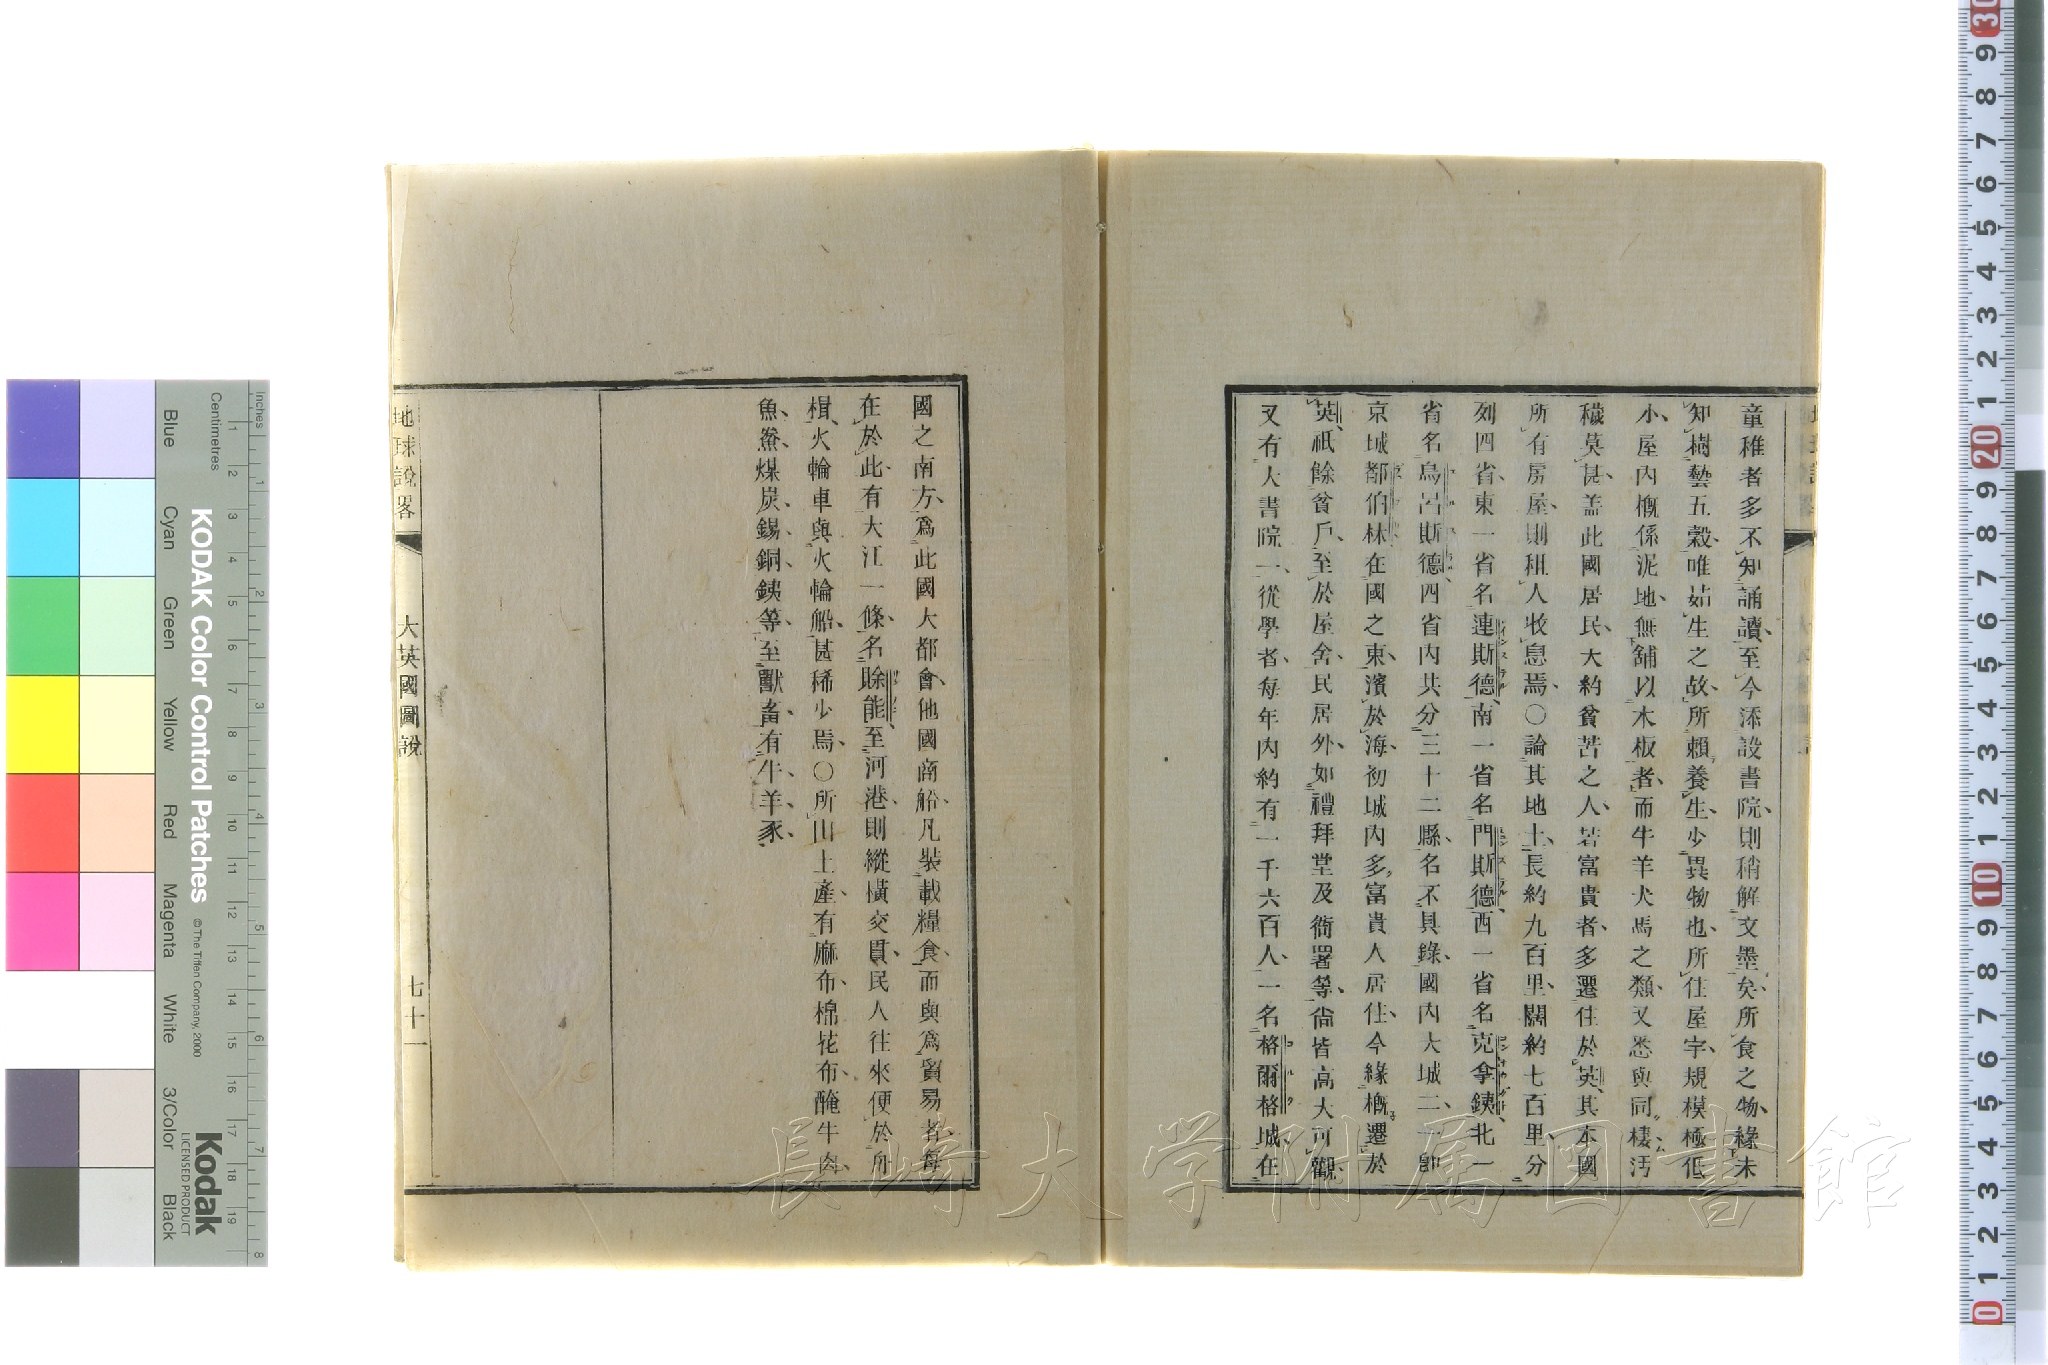 童稚者多不知誦讀、至今添設書院、則稍解文墨矣、所食之物、緣未
知樹藝五穀、唯茹生之故、所賴養生、少異物也、所住屋宇、規模極低
小、屋內槪係泥地、無舖以木板者、而牛羊犬馬之類、又悉與同棲汚
穢莫甚、盖此國居民、大約貧苦之人、若富貴者、多遷住於英、其本國
所有房屋、則租人收息焉、〇論其地土、長約九百里、闊約七百里、分
列四省、東一省名連斯德、南一省名門斯德、西一省名克拿銕、北一
省名烏呂斯德、四省內共分三十二縣、名不具錄、國內大城二、一卽
京城都伯林、在國之東、濱於海、初城內多富貴人居住、今緣槪遷於
英、祇餘貧戶、至於屋舍、民居外、如禮拜堂及衙署等、尙皆高大可觀、
又有大書院一、從學者、每年內約有一千六百人、一名格爾格城、在
國之南方、爲此國大都會、他國商船、凡裝載糧食、而與爲貿易者、每
在於此、有大江一條、名除能、至河港、則縱橫交貫、民人往來便於舟
楫、火輪車與火輪船、甚稀少焉、〇所出土產、有麻布、棉花布、醃牛肉、
魚、鮝、煤炭、錫、銅、銕等、至獸畜、有牛、羊、豕、
地球說畧
大英國圖說
七十一
KODAK Color Control Patches
© The Tiffen Company, 2000
Kodak
LICENSED PRODUCT
Inches
Centimetres
Blue
Cyan
Green
Yellow
Red
Magenta
White
3/Color
Black
長崎大学附属図書館